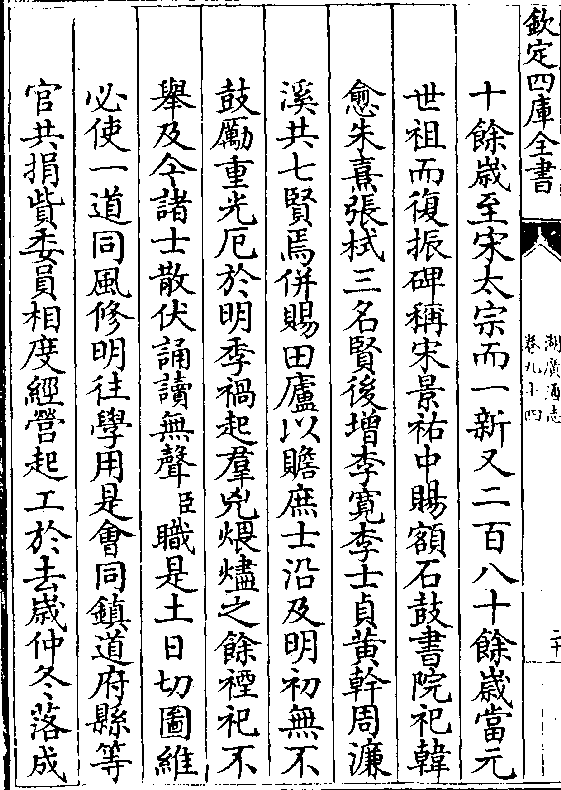 欽定四庫全書
湖廣通志
卷九十四
二十
十餘歲至宋太宗而一新又二百八十餘歲當元
世祖而復振碑稱宋景祐中賜額石鼓書院祀韓
愈朱熹張栻三名賢後增李寛李士貞黃榦周濓
溪共七賢焉併賜田廬以贍庶士沿及明初無不
鼓勵重光厄於明季禍起羣兇煨燼之餘禋祀不
舉及今諸士散伏誦讀無聲臣職是土日切圖維
必使一道同風修明往學用是會同鎮道府縣等
官共捐貲委員相度經營起工於去歲仲冬落成